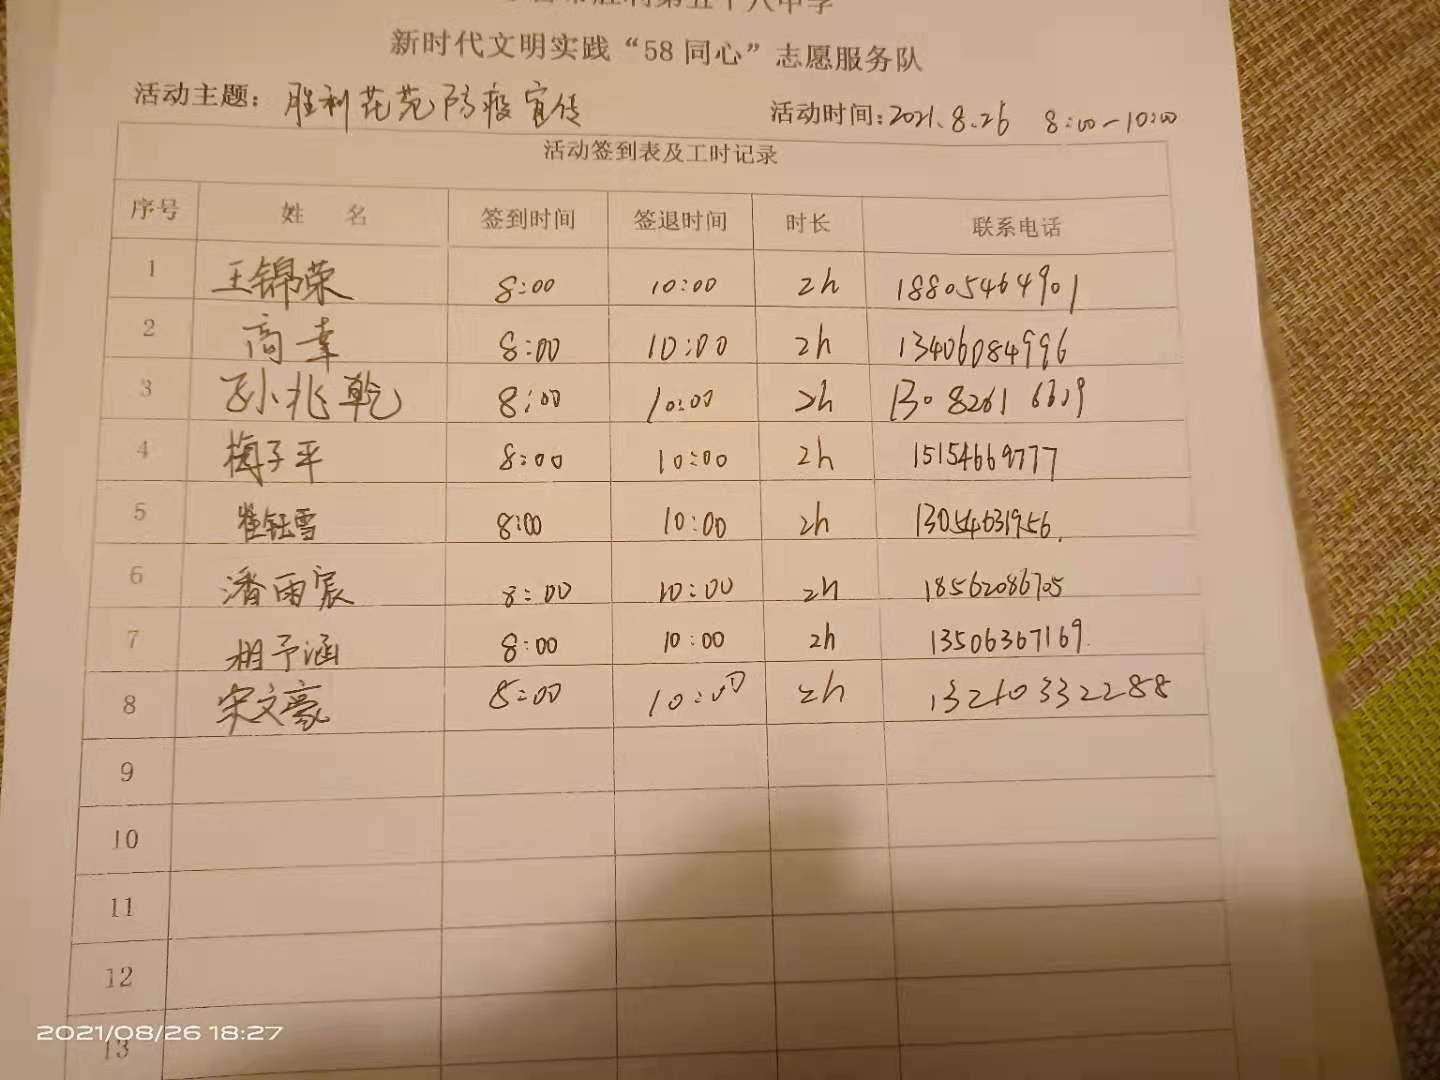 胜利第五十八中学
新时代文明实践“58同心”志愿服务队
活动主题：胜利花苑防疫宣传 活动时间：2021.8.26 8:00-10:00
活动签到表及工时记录
序号 姓 名 签到时间 签退时间 时长 联系电话
1 王锦荣 8:00 10:00 2h 18805464901
2 高幸 8:00 10:00 2h 13406084996
3 孙兆乾 8:00 10:00 2h
4 梅子平 8:00 10:00 2h 15154669777
5 崔钰雪 8:00 10:00 2h 13054631956.
6 潘雨宸 8:00 10:00 2h 18562086705
7 相予涵 8:00 10:00 2h 13506367169
8 宋文豪 8:00 10:00 2h 13210332288
9
10
11
12
2021/08/26 18:27
13